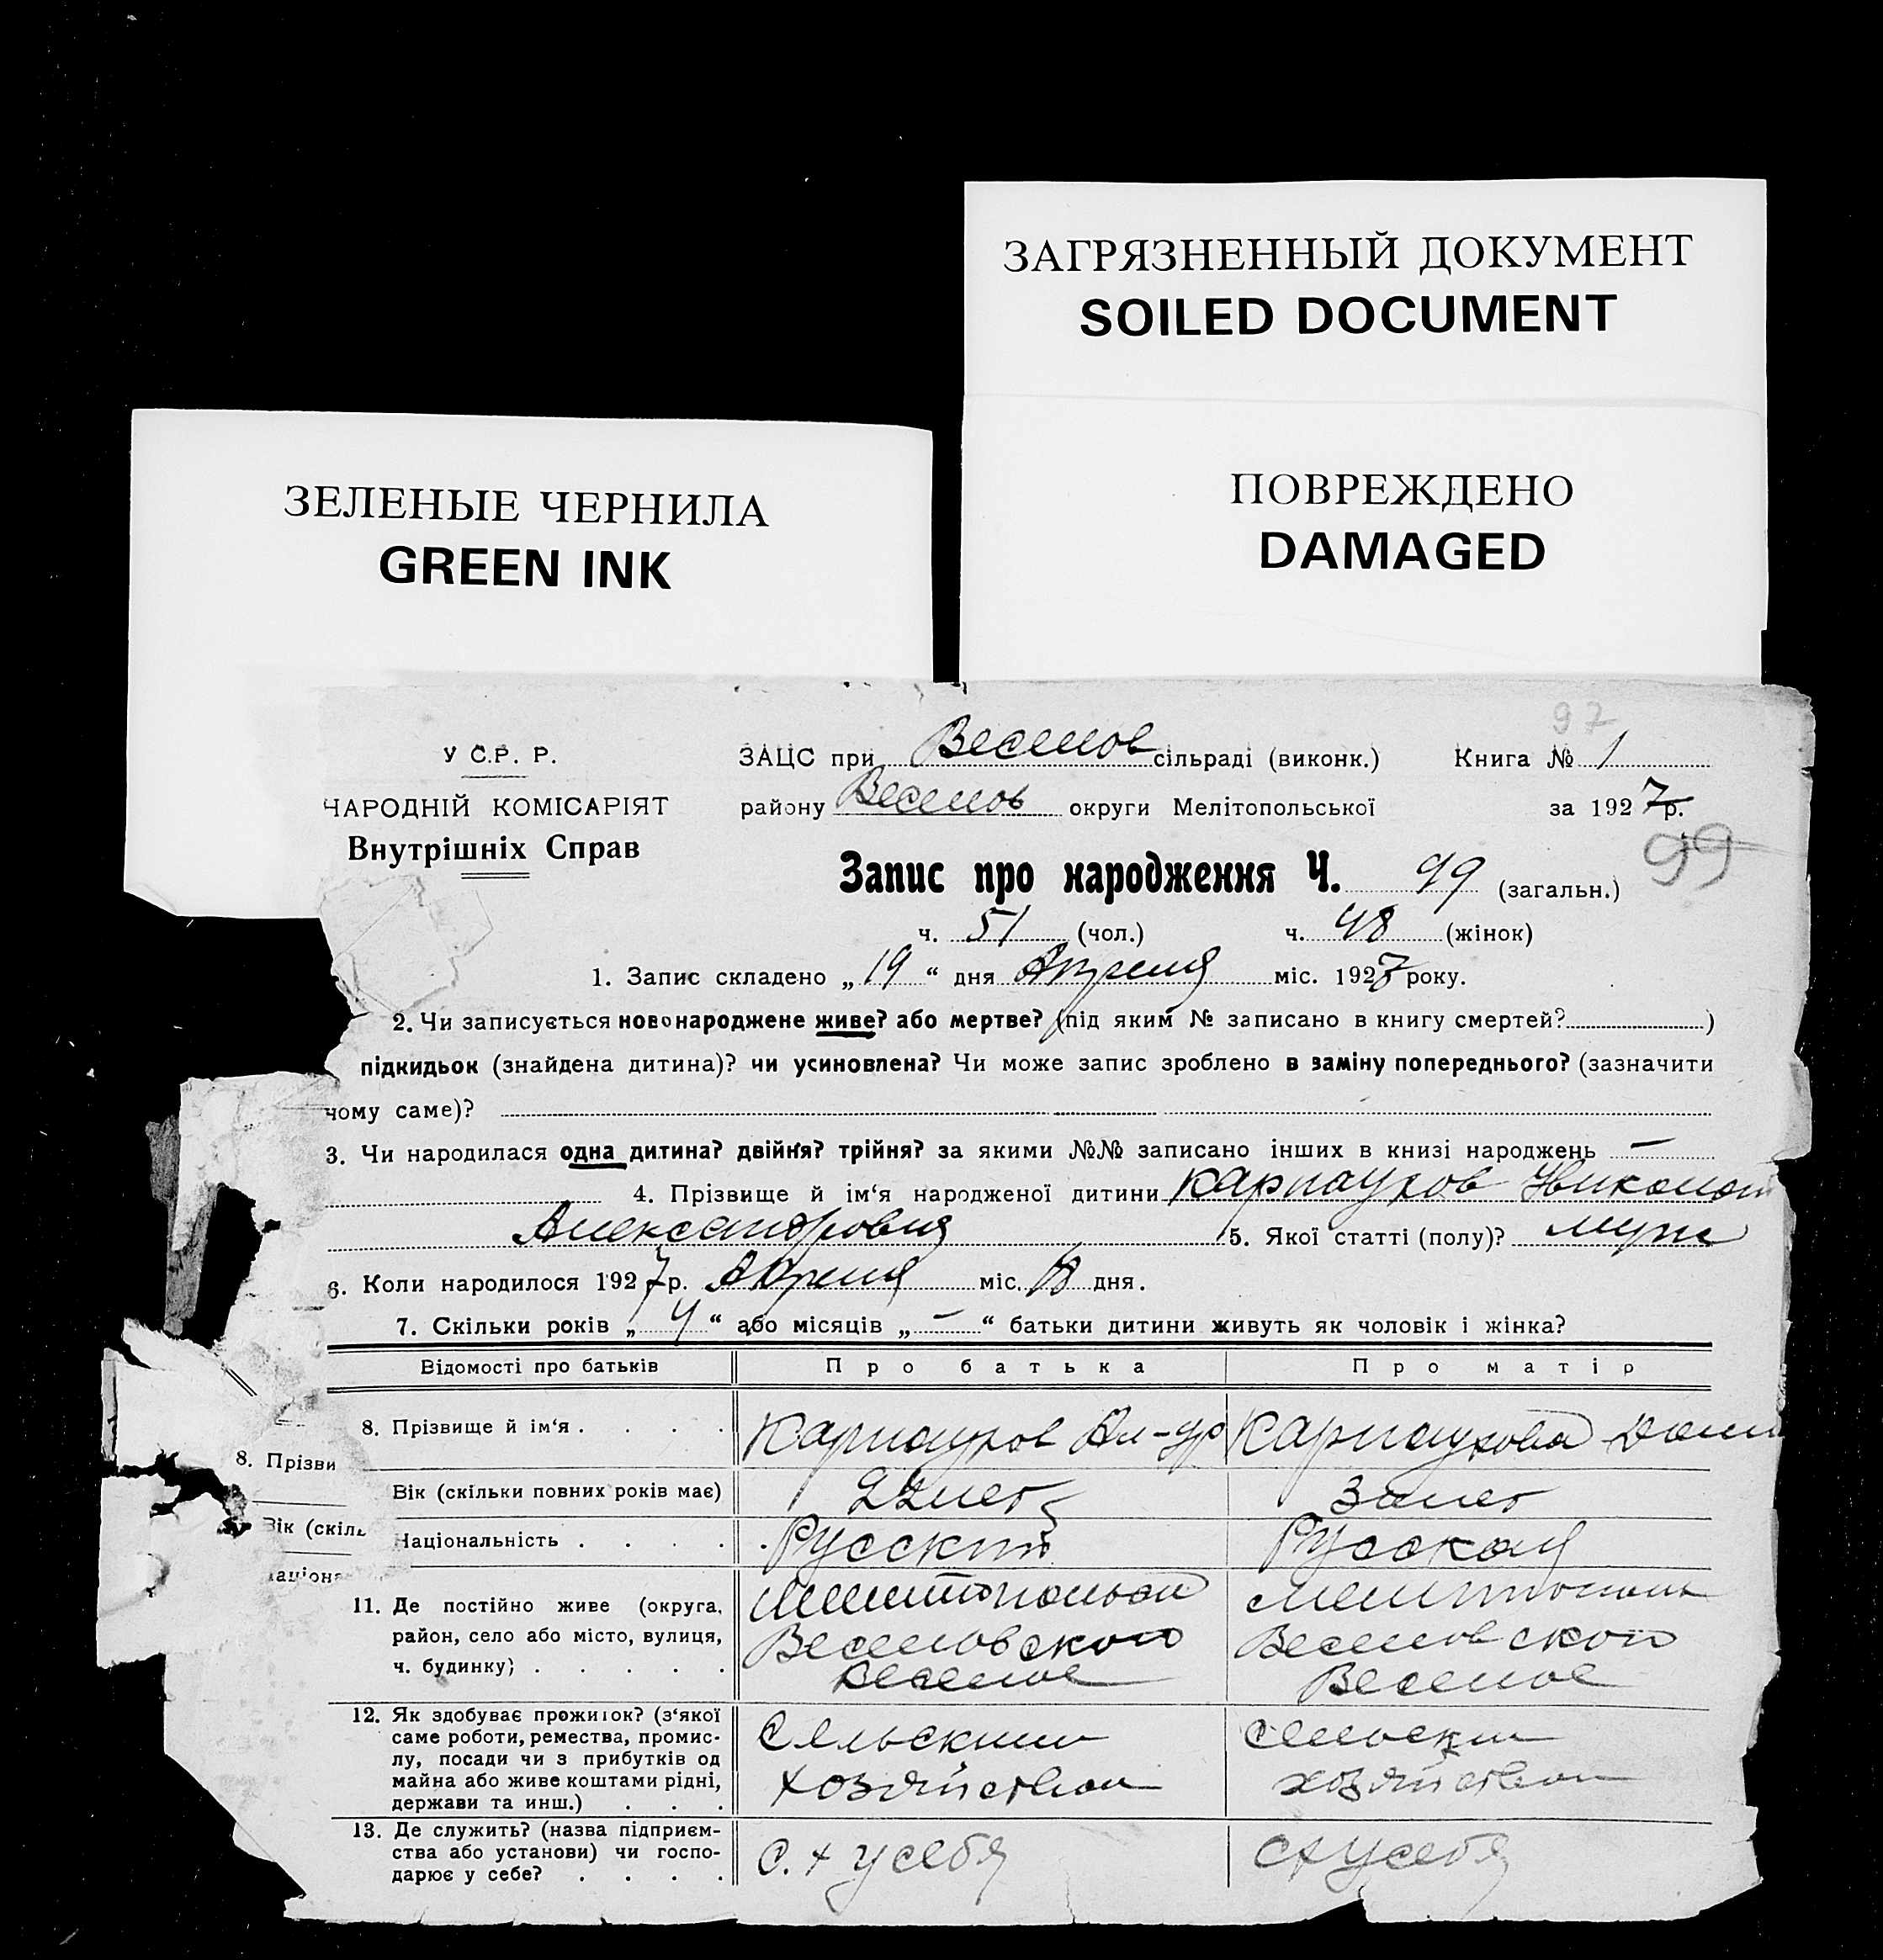 ЗАГРЯЗНЕННЫЙ ДОКУМЕНТ
SOILED DOCUMENT
ЗЕЛЕНЫЕ ЧЕРНИЛА
GREEN INK
ПОВРЕЖДЕНО
DAMAGED
97
У С.Р. Р.
НАРОДНІЙ КОМІСАРІЯТ
Внутрішніх Справ
ЗАЦС при Веселов сільраді (виконк.) Книга № 1
району Веселов округи Мелітопольської за 1927 р.
99
Запис про народження Ч. 99 (загальн.)
ч. 51 (чол.) ч. 48 (жінок)
1. Запис складено „19“ дня Апреля міс. 1927 року.
2. Чи записується новонароджене живе? або мертве? (під яким № записано в книгу смертей? )
підкидьок (знайдена дитина)? чи усиновлена? Чи може запис зроблено в заміну попереднього? (зазначити
чому саме)?
3. Чи народилася одна дитина? двійня? трійня? за якими №№ записано інших в книзі народжень —
4. Прізвище й ім‘я народженої дитини Карпаухов
5. Якої статті (полу)? муж
6. Коли народилося 1927 р. Апреля міс. 18 дня.
7. Скільки років „4“ або місяців „—“ батьки дитини живуть як чоловік і жінка?
Відомості про батьків Про батька Про матір
8. Прізвище й ім‘я . . . . Карпаухов Ал-др Карпаухова
8. Прізви
Вік (скільки повних років має) 22 лет лет
Вік (скіль
Національність . . . . . Русский Русская
аціона
11. Де постійно живе (округа, Мелитопольск Мелитополь
район, село або місто, вулиця, Веселовского Веселовского
ч. будинку) . . . . . Веселое Веселое
12. Як здобуває прожиток? (з‘якої
саме роботи, ремества, промис- Сельским Сельским
лу, посади чи з прибутків од
майна або живе коштами рідні, хозяйством хозяйством
держави та инш.) . . .
13. Де служить? (назва підприєм-
ства або установи) чи госпо- С. х у себя С х у себя
дарює у себе? . . . .